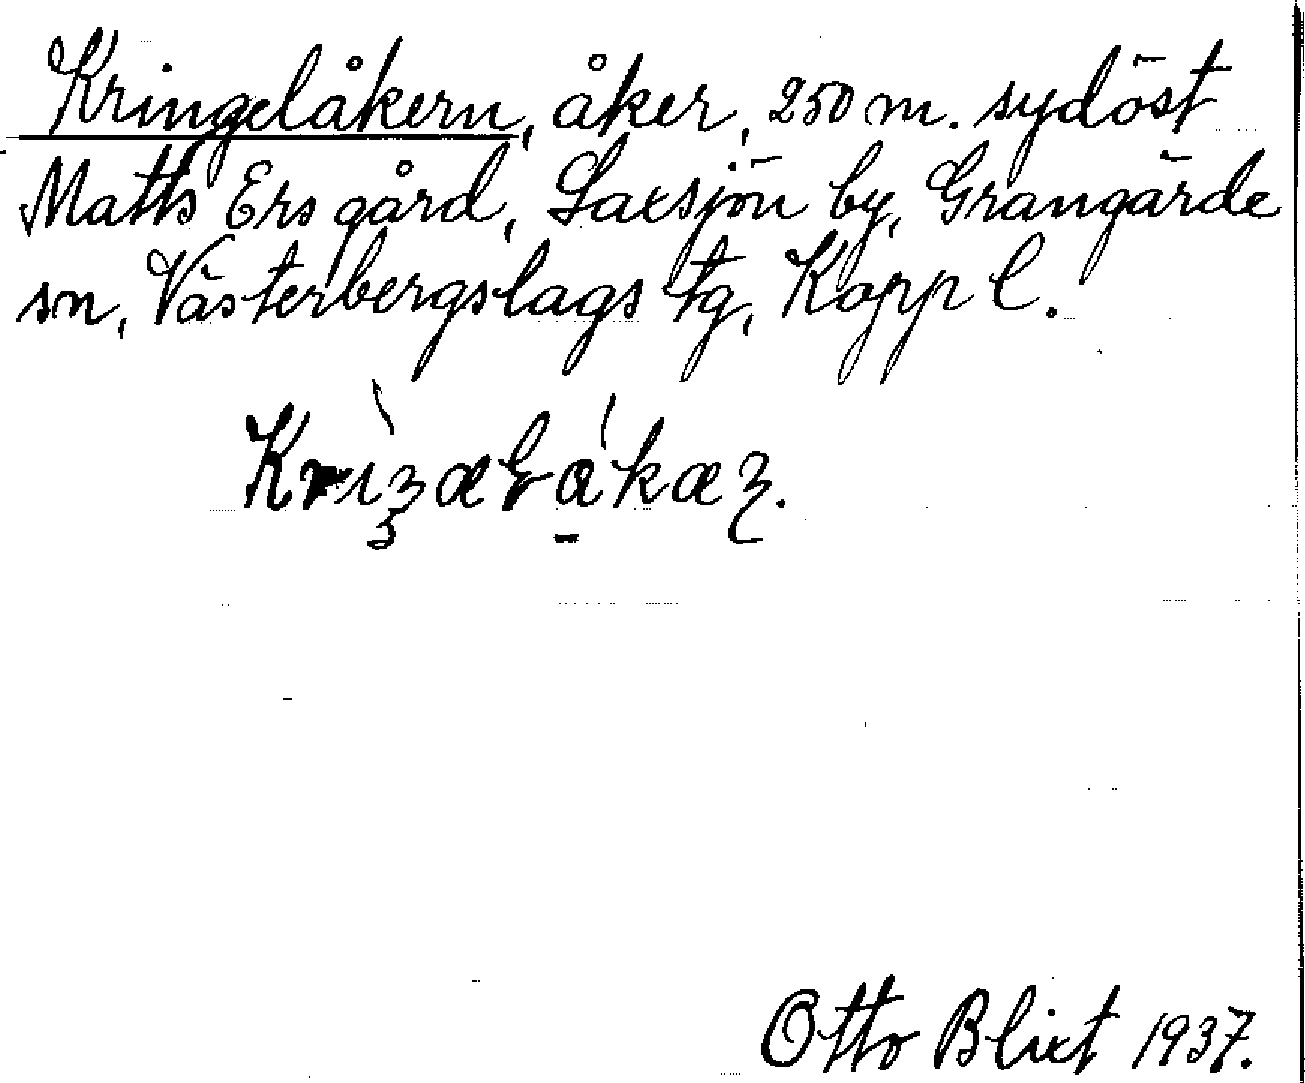 Kringelåkern, åker, 250 m. sydöst
Matts Ers gård, Laxsjön by, Grangärde
sn, Västerbergslags tg, Kopp l.
Otto Blixt 1937.